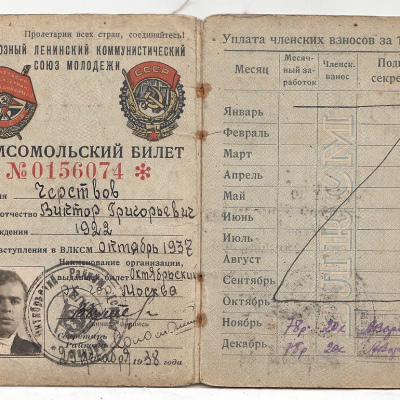 Пролетарии всех стран, соединяйтесь!
ЗНЫЙ ЛЕНИНСКИЙ КОММУНИСТИЧЕСКИЙ
СОЮЗ МОЛОДЕЖИ
СССР
МСОМОЛЬСКИЙ БИЛЕТ
№ 0156074 *
Черствов
отчество Виктор Григорьевич
ждения 1922
вступления в ВЛКСМ Октябрь 1937
Наименование организации,
билет Октябрьский
Москва
Секретарь
1938 года
Уплата членских взносов за 1
Месяц
Месячн- ый за- работок
Членск. взнос
Под
секре
Январь
Февраль
Март
Апрель
Май
Июнь
Июль
Август
Сентябрь
Октябрь
Ноябрь 78р 20к
Декабрь 78р 20к